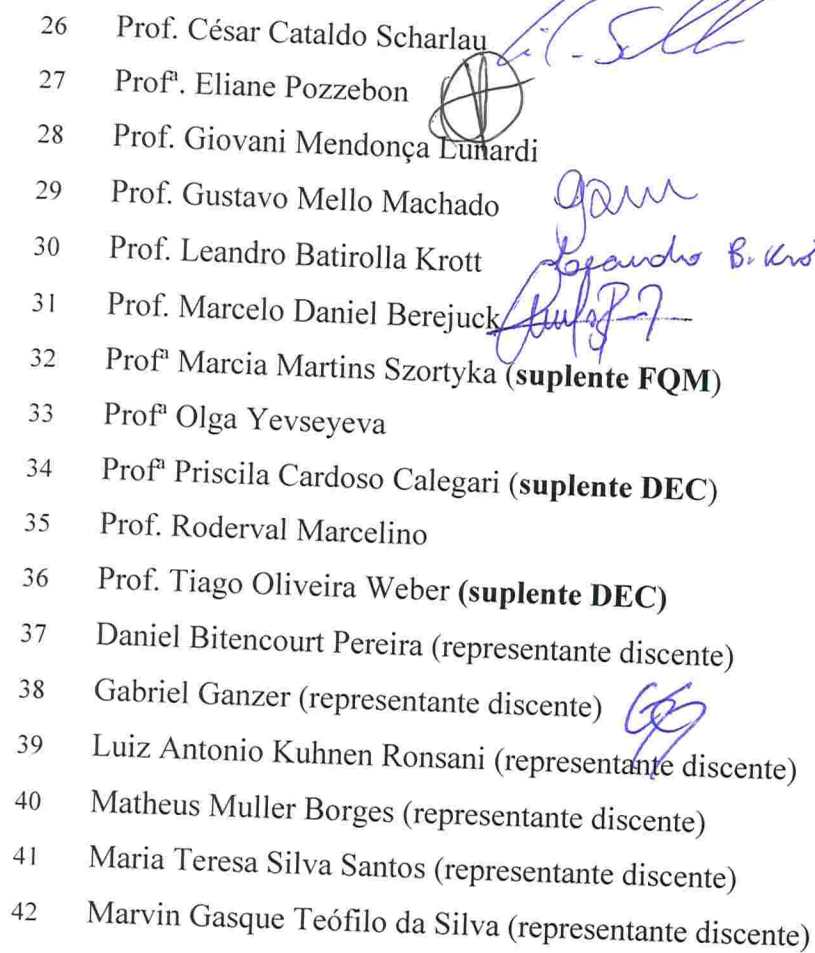 26 Prof. César Cataldo Scharlau
27 Profª. Eliane Pozzebon
28 Prof. Giovani Mendonça Lunardi
29 Prof. Gustavo Mello Machado
30 Prof. Leandro Batirolla Krott Leandro B.
31 Prof. Marcelo Daniel Berejuck
32 Profª Marcia Martins Szortyka (suplente FQM)
33 Profª Olga Yevseyeva
34 Profª Priscila Cardoso Calegari (suplente DEC)
35 Prof. Roderval Marcelino
36 Prof. Tiago Oliveira Weber (suplente DEC)
37 Daniel Bitencourt Pereira (representante discente)
38 Gabriel Ganzer (representante discente)
39 Luiz Antonio Kuhnen Ronsani (representante discente)
40 Matheus Muller Borges (representante discente)
41 Maria Teresa Silva Santos (representante discente)
42 Marvin Gasque Teófilo da Silva (representante discente)